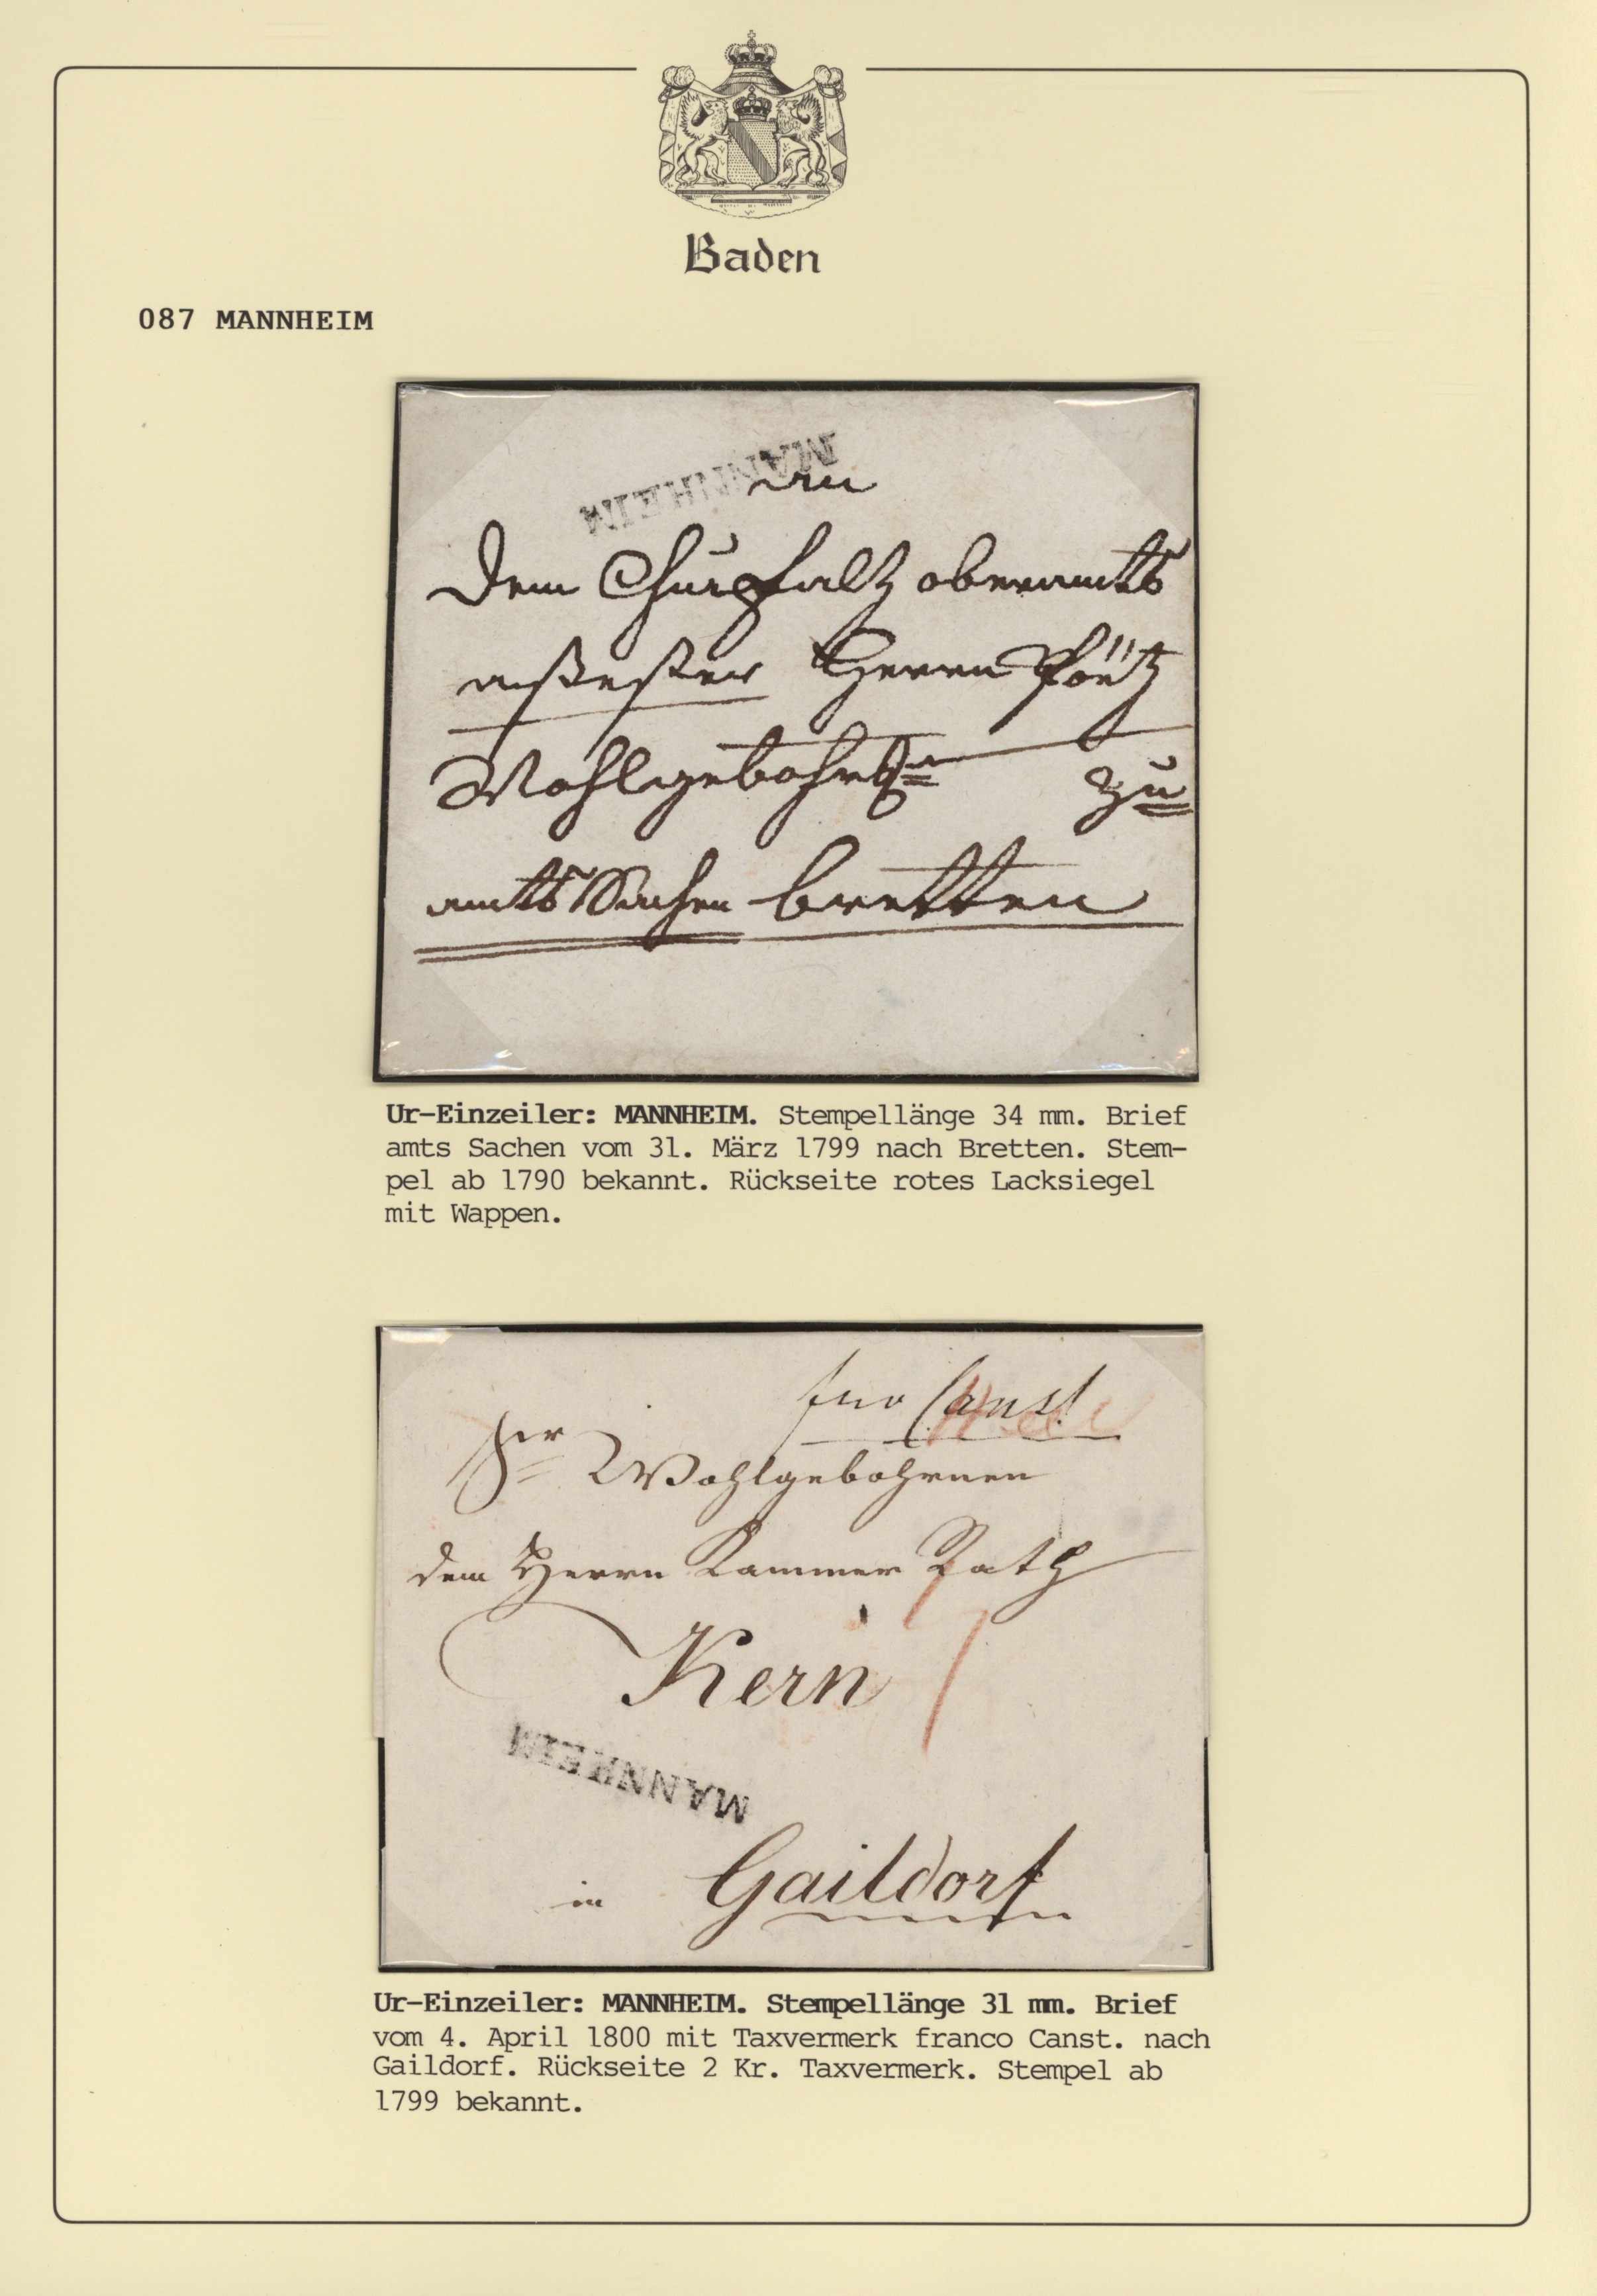 Baden
087 MANNHEIM
MANNHEIM
An
Dem Churpfaltz oberamts
Herrn
Wohlgebohrn
zu
amts Sachen bretten
Ur-Einzeiler: MANNHEIM. Stempellänge 34 mm. Brief
amts Sachen vom 31. März 1799 nach Bretten. Stem-
pel ab 1790 bekannt. Rückseite rotes Lacksiegel
mit Wappen.
Wohlgebohrnen
dem Herrn Kammer Rath
Kern
MANNHEIM
in Gaildorf
Ur-Einzeiler: MANNHEIM. Stempellänge 31 mm. Brief
vom 4. April 1800 mit Taxvermerk franco Canst. nach
Gaildorf. Rückseite 2 Kr. Taxvermerk. Stempel ab
1799 bekannt.